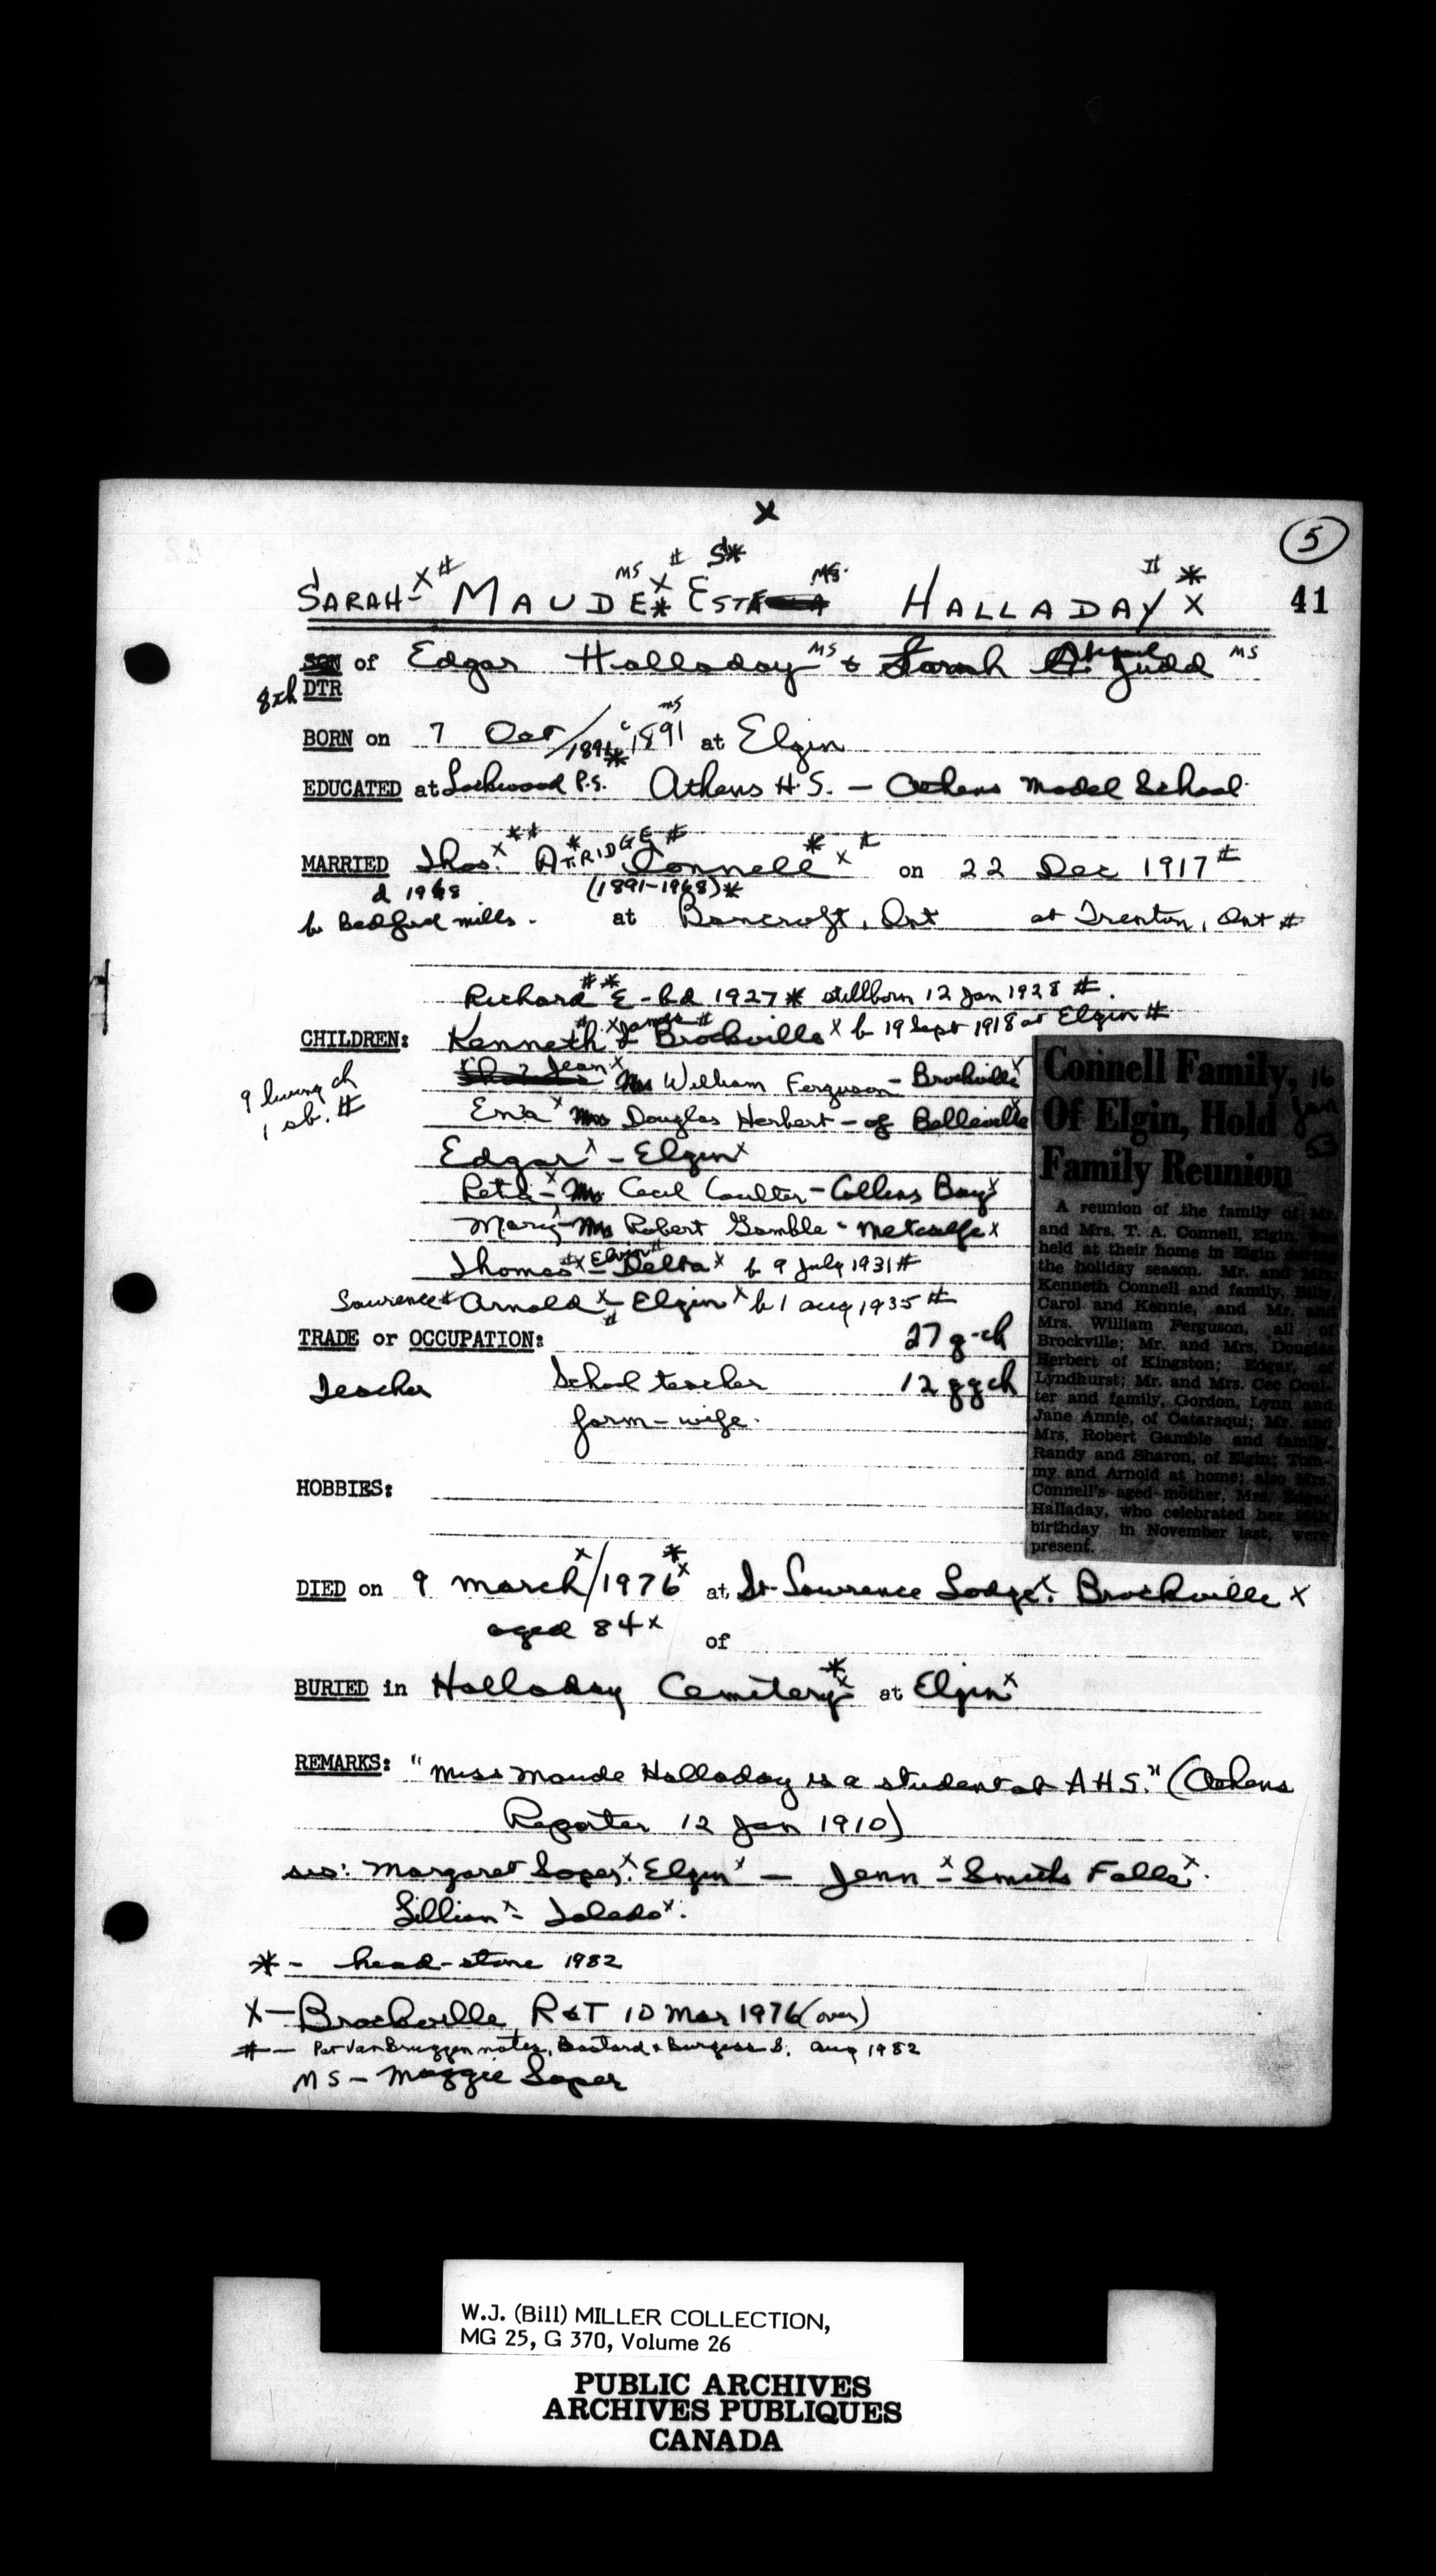 X
5
41
SARAH - X # MAUDE MS X * # EST S* MS HALLADAY # * X
SON of Edgar Halladay MS & Sarah A. Judd MS
8th DTR
BORN on 7 Oct / 1891 * c 1891 MS at Elgin
EDUCATED at Lockwood P.S. Athens H.S. - Athens Model School
MARRIED Thos. X ** ATRIDGE * # Connell * X # on 22 Dec 1917 #
d 1968 (1891-1968) *
b Bedford Mills. at Bancroft, Ont at Trenton, Ont #
Richard # * E - bd 1927 * stillborn 12 Jan 1928 #.
CHILDREN: Kenneth # X James # Brockville X b 19 Sept 1918 at Elgin #
9 living ch
1 sb. #
Jean X Mrs William Ferguson - Brockville X
Erna X Mrs Douglas Herbert - of Belleville X
Edgar X - Elgin X
Reta X - Mrs Cecil Coulter - Collins Bay X
Mary X - Mrs Robert Gamble - Metcalfe X
Thomas # X - Elgin # Delta X b 9 July 1931 #
Lawrence # Arnold X - Elgin X b 1 Aug 1935 #
Connell Family
Of Elgin, Hold
Family Reunion
16 Jan 53
A reunion of the family of Mr.
and Mrs. T. A. Connell, Elgin, was
held at their home in Elgin during
the holiday season. Mr. and Mrs.
Kenneth Connell and family, Billy,
Carol and Kennie, and Mr. and
Mrs. William Ferguson, all of
Brockville; Mr. and Mrs. Douglas
Herbert of Kingston; Edgar, of
Lyndhurst; Mr. and Mrs. Cec Coul-
ter and family, Gordon, Lynn and
Jane Annie, of Cataraqui; Mr. and
Mrs. Robert Gamble and family,
Randy and Sharon, of Elgin; Tom-
my and Arnold at home; also Mrs.
Connell's aged mother, Mrs. Edgar
Halladay, who celebrated her
birthday in November last, were
present.
TRADE or OCCUPATION: 27 g-ch
Teacher School teacher 12 ggch
farm-wife.
HOBBIES:
DIED on 9 March X / 1976 * X at St Lawrence Lodge X. Brockville X
aged 84 X of
BURIED in Halladay Cemetery * X at Elgin X
REMARKS: "Miss Maude Halladay is a student at A H S." (Athens
Reporter 12 Jan 1910)
sis: Margaret Soper X. Elgin X - Jenn X - Smiths Falls X.
Lillian X - Toledo X.
* - head-stone 1982
X - Brockville R&T 10 Mar 1976 (over)
# - Pat Van Bruggen notes, Bastard & Burgess S. Aug 1982
MS - Maggie Soper
W.J. (Bill) MILLER COLLECTION,
MG 25, G 370, Volume 26
PUBLIC ARCHIVES
ARCHIVES PUBLIQUES
CANADA